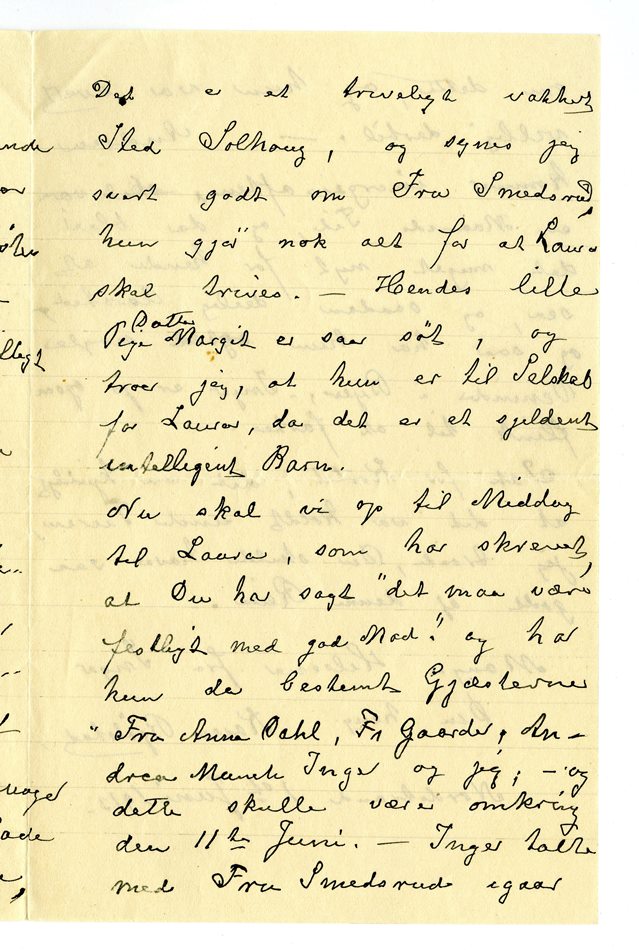 Det er et triveligt vakkert
Sted Solhaug, og synes jeg
svært godt om Fru Smedsrud,
hun gjør nok alt for at Laura
skal trives. — Hendes lille
Datter
Pige Margit er saa søt, og
troer jeg, at hun er til Selskab
for Laura, da det er et sjeldent
intelligent Barn.
Nu skal vi op til Middag
til Laura, som har skrevet,
at Du har sagt "det maa være
festligt med god Mad." og har
hun da bestemt Gjæsterne
"Fru Anna Dahl, Fr Gaarder, An-
drea Munch Inger og jeg; — og
dette skulle være omkring
den 11te Juni. — Inger talte
med Fru Smedsrud igaar
ende
sten
illegt
mager